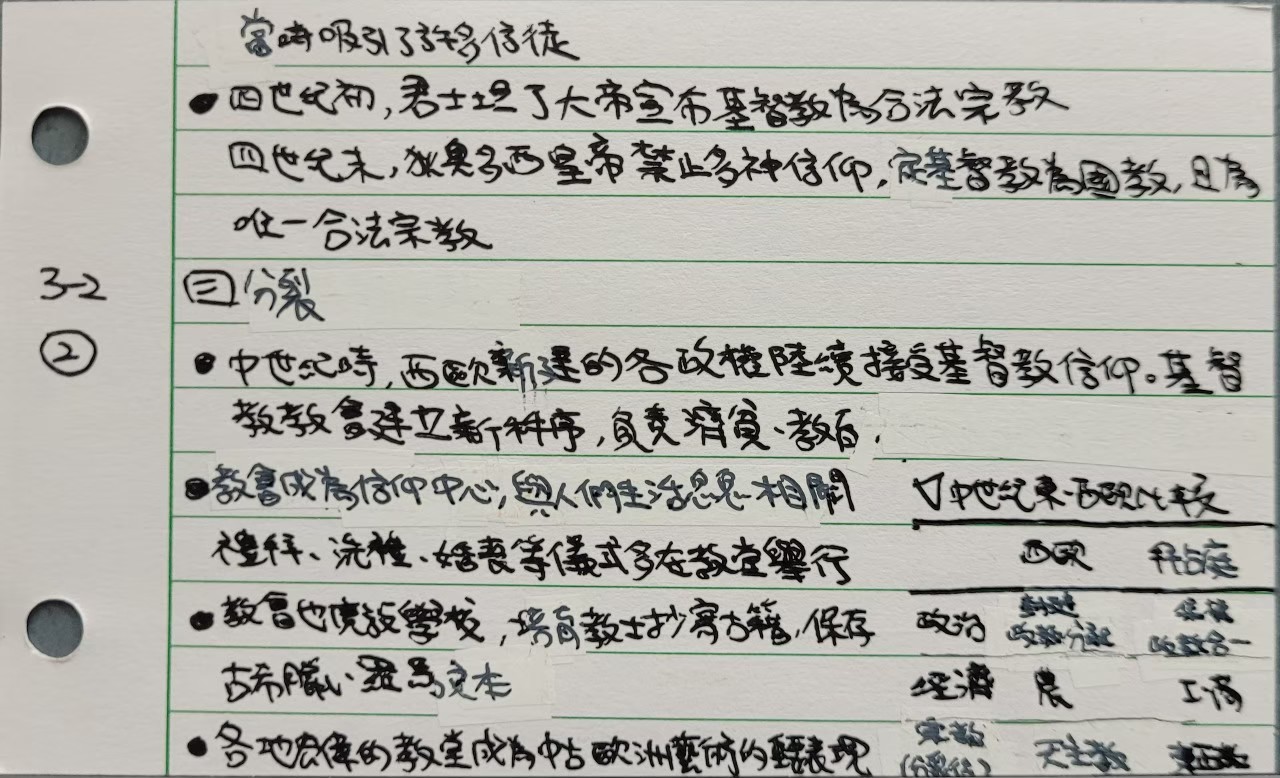 當時吸引了許多信徒
• 四世紀初,君士坦丁大帝宣布基督教為合法宗教
四世紀末,狄奧多西皇帝禁止多神信仰,定基督教為國教,且為
唯一合法宗教
3-2
三 分裂
②
• 中世紀時,西歐新建的各政權陸續接受基督教信仰。基督
教教會建立新秩序,負責濟貧、教育,
• 教會成為信仰中心,與人們生活息息相關
禮拜、洗禮、婚喪等儀式多在教堂舉行
• 教會也廣設學校,培育教士抄寫古籍,保存
古希臘、羅馬文本
• 各地宏偉的教堂成為中古歐洲藝術的主要表現
▽中世紀東西歐比較
西歐 拜占庭
政治 封建 政教分立 政教合一
經濟 農 工商
宗教 天主教 東正教